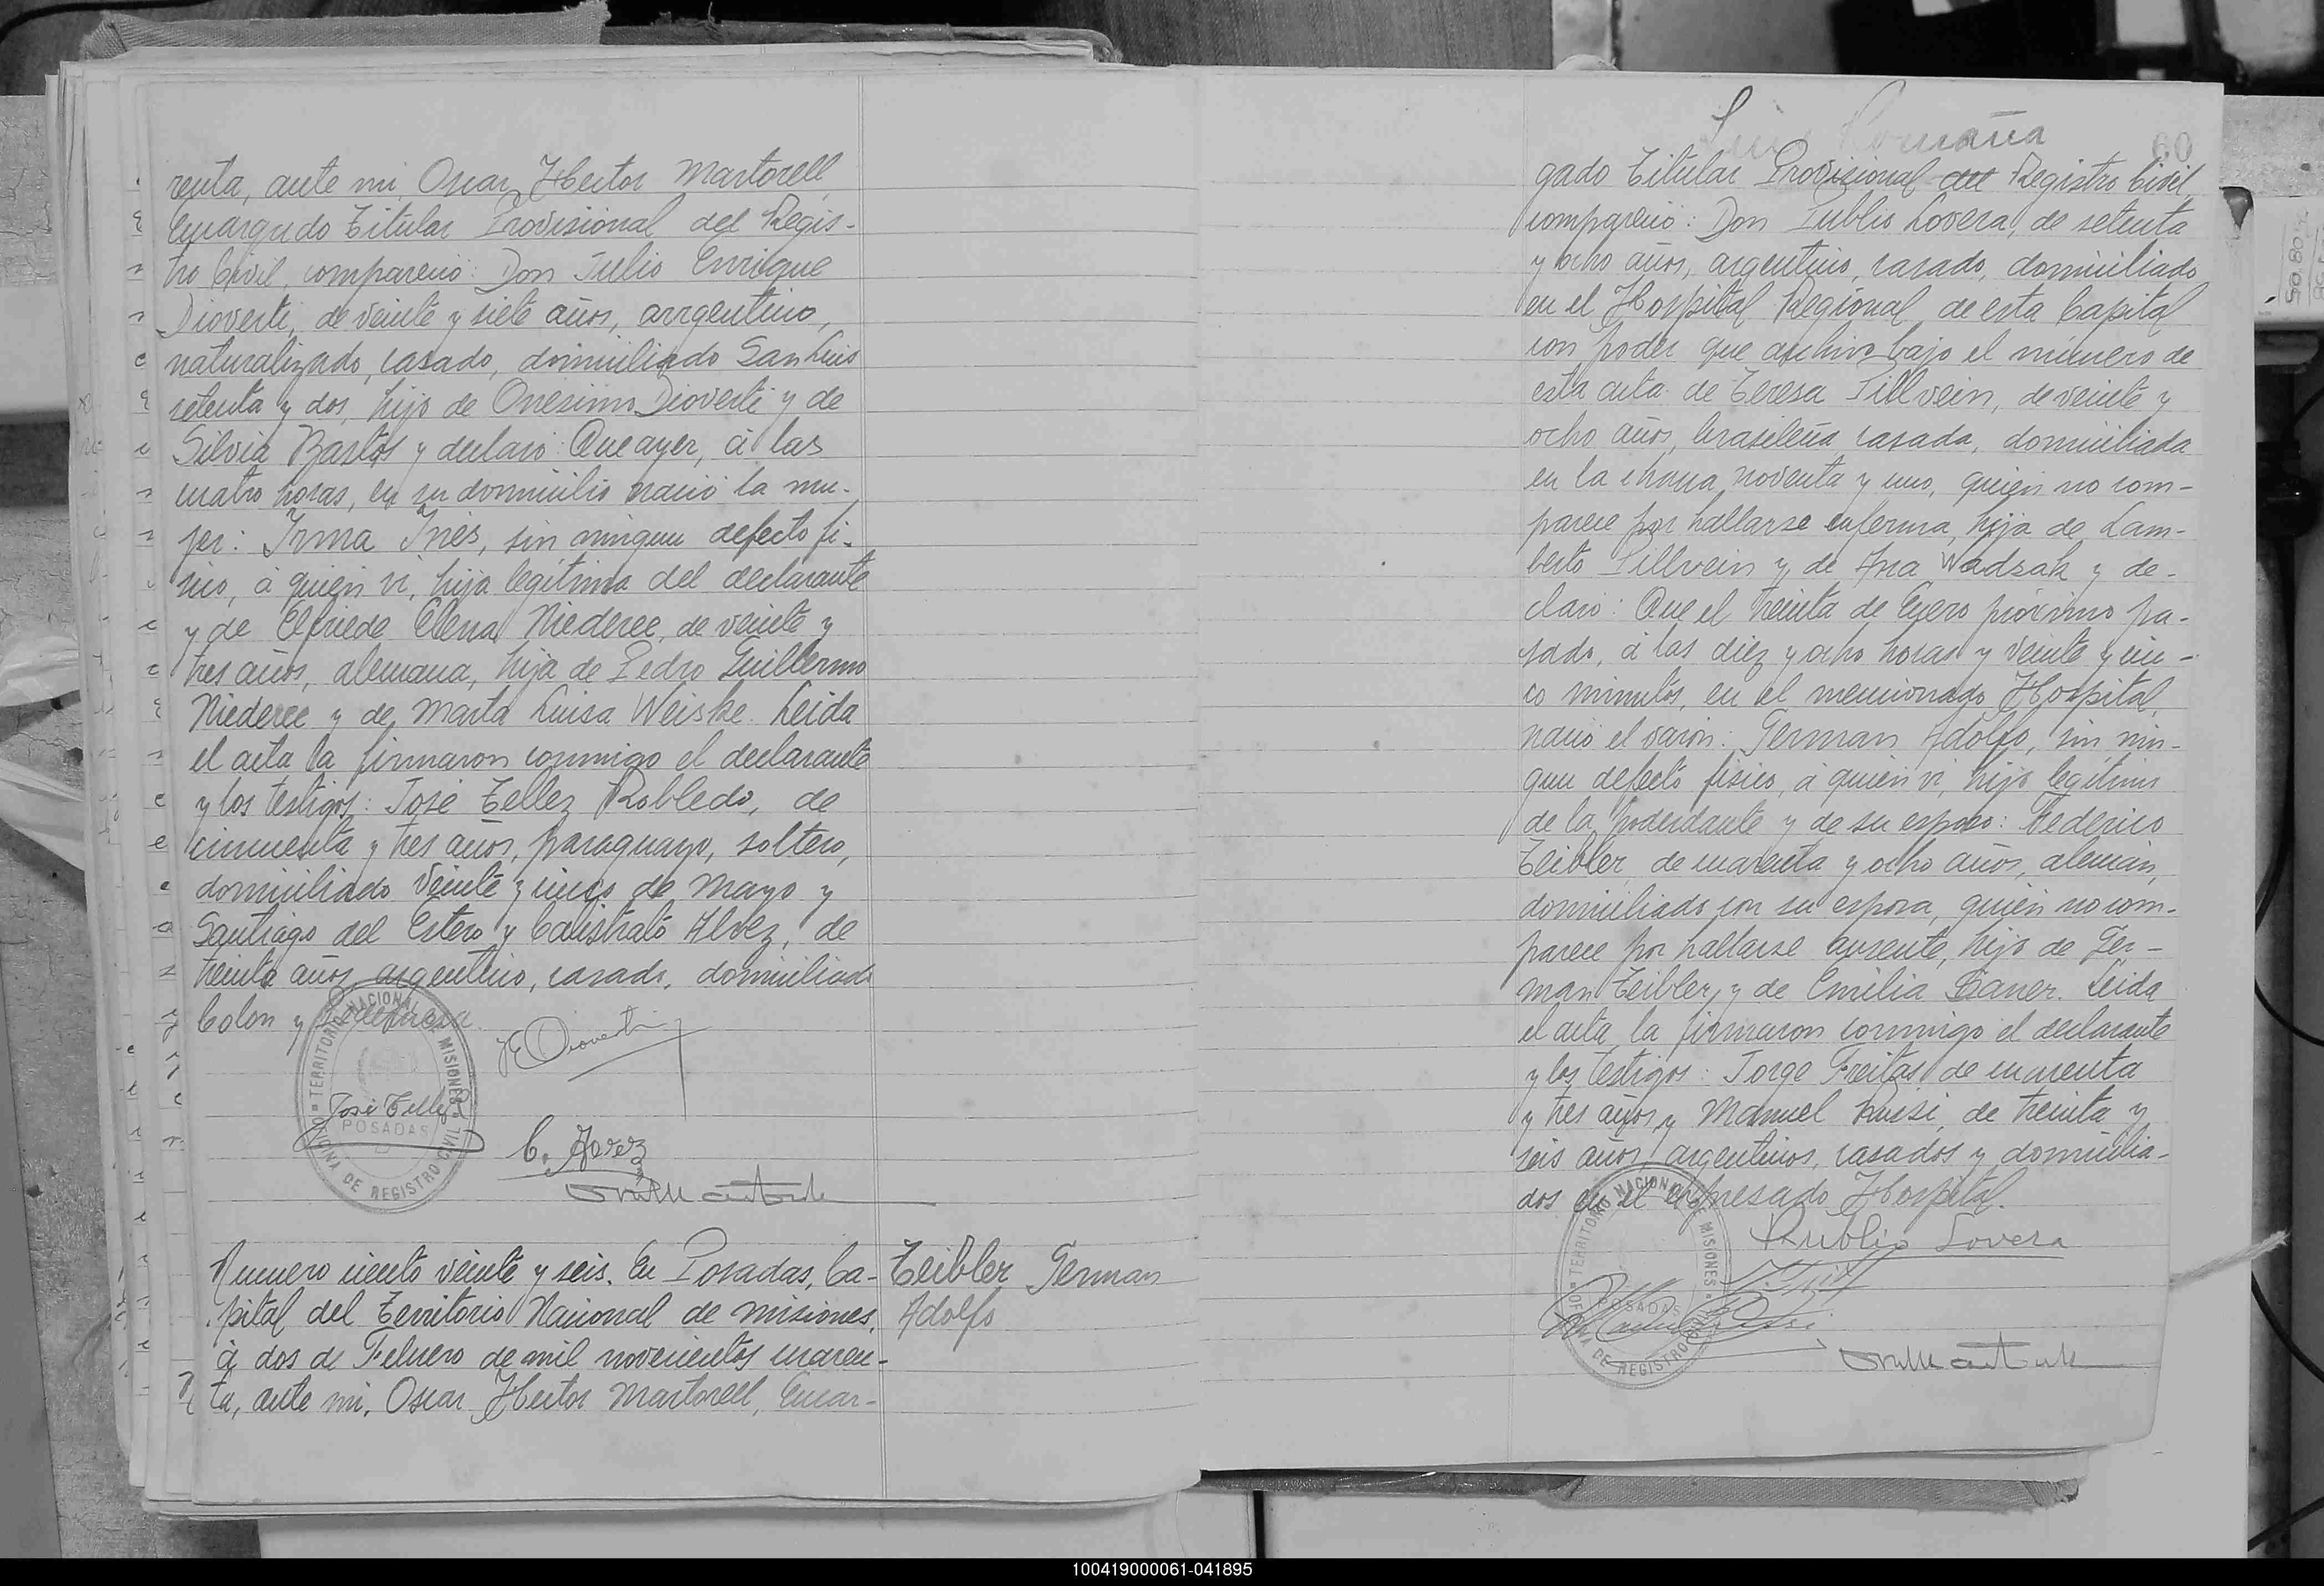 renta, ante mi, Oscar Hector Martorell,
Encargado Titular Provisional del Regis-
tro Civil, compareció: Don Julio Enrique
Dioverti, de veinte y siete años, arrgentino,
naturalizado, casado, domiciliado San Luis
setenta y dos, hijo de Onesimo Dioverti y de
Silvia Bastos y declaró: Que ayer, á las
cuatro horas, en su domicilio nació la mu-
jer: Irma Inés, sin ningun defecto fi-
sico, á quien vi, hija legítima del declarante
y de Elfriede Elena Niederee, de veinte y
tres años, alemana, hija de Pedro Guillermo
Niederee y de Marta Luisa Weiske. Leida
el acta la firmaron conmigo el declarante
y los testigos: José Tellez Robledo, de
cincuenta y tres años, paraguayo, soltero,
domiciliado Veinte y cinco de Mayo y
Santiago del Estero y Calistrato Alvez, de
treinta años, argentino, casado, domiciliado
Colon y
TERRITORIO NACIONAL DE MISIONES
JE Dioverti
José Tellez R
POSADAS
OFICINA DE REGISTRO CIVIL
C. Alvez
Numero ciento veinte y seis. En Posadas, Ca-
pital del Territorio Nacional de Misiones,
á dos de Febrero de mil novecientos cuaren-
ta, ante mi, Oscar Hector Martorell, Encar-
Teibler German
Adolfo
60
gado Titular Provisional del Registro Civil,
compareció: Don Publio Lovera, de setenta
y ocho años, argentino, casado, domiciliado
en el Hospital Regional de esta Capital
con poder que archivo bajo el número de
esta acta de Teresa Sillvein, de veinte y
ocho años, brasileña, casada, domiciliada
en la chacra noventa y uno, quien no com-
parece por hallarse enferma, hija de Lam-
berto Sillvein y de Ana Wadzak y de-
claró: Que el treinta de Enero próximo pa-
sado, á las diez y ocho horas y veinte y cin-
co minutos, en el mencionado Hospital,
nació el varón: German Adolfo, sin nin-
gun defecto fisico, á quien vi, hijo legítimo
de la poderdante y de su esposo: Federico
Teibler, de cuarenta y ocho años, alemán,
domiciliado con su esposa, quien no com-
parece por hallarse ausente, hijo de Ger-
man Teibler y de Emilia Baner. Leida
el acta la firmaron conmigo el declarante
y los testigos: Jorge Freitas de cuarenta
y tres años y Manuel Russi, de treinta y
seis años, argentinos, casados y domicilia-
dos en el expresado Hospital.
Publio Lovera
TERRITORIO NACIONAL DE MISIONES
POSADAS
OFICINA DE REGISTRO CIVIL
100419000061-041895